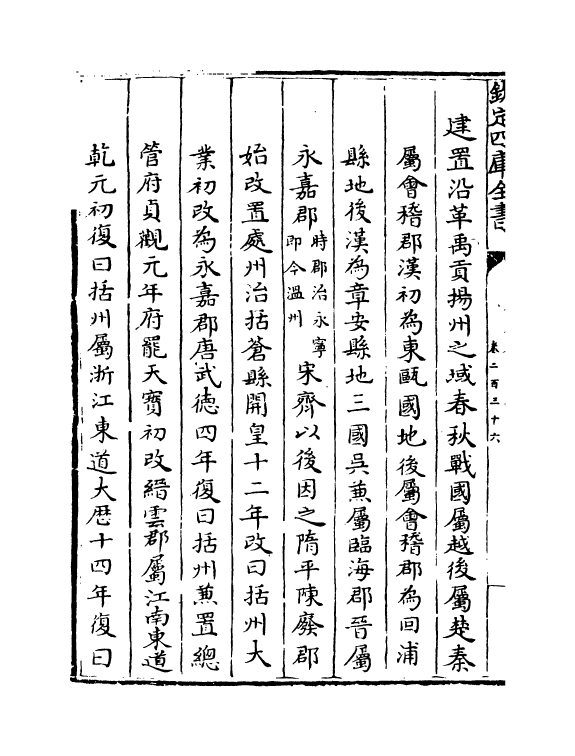 欽定四庫全書
卷二百三十六
建置沿革禹貢揚州之域春秋戰國屬越後屬楚秦
屬會稽郡漢初為東甌國地後屬會稽郡為回浦
縣地後漢為章安縣地三國吳兼屬臨海郡晉屬
永嘉郡時郡治永寧即今溫州宋齊以後因之隋平陳廢郡
始改置處州治括蒼縣開皇十二年改曰括州大
業初改為永嘉郡唐武德四年復曰括州兼置總
管府貞觀元年府罷天寶初改縉雲郡屬江南東道
乾元初復曰括州屬浙江東道大厯十四年復曰